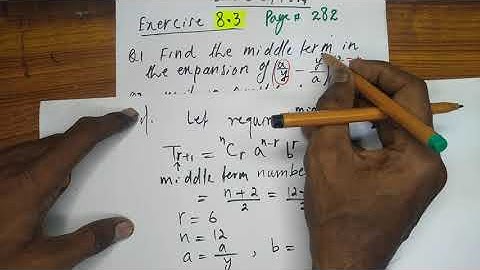 Exercise 8.3 Page # 282
Q1 Find the middle term in
the expansion of (a/y - y/a)
Let requ
T_{r+1} = ^nC_r a^{n-r} b^r
middle term number
= n+2/2 = 12
r = 6
n = 12
a = a/y , b =